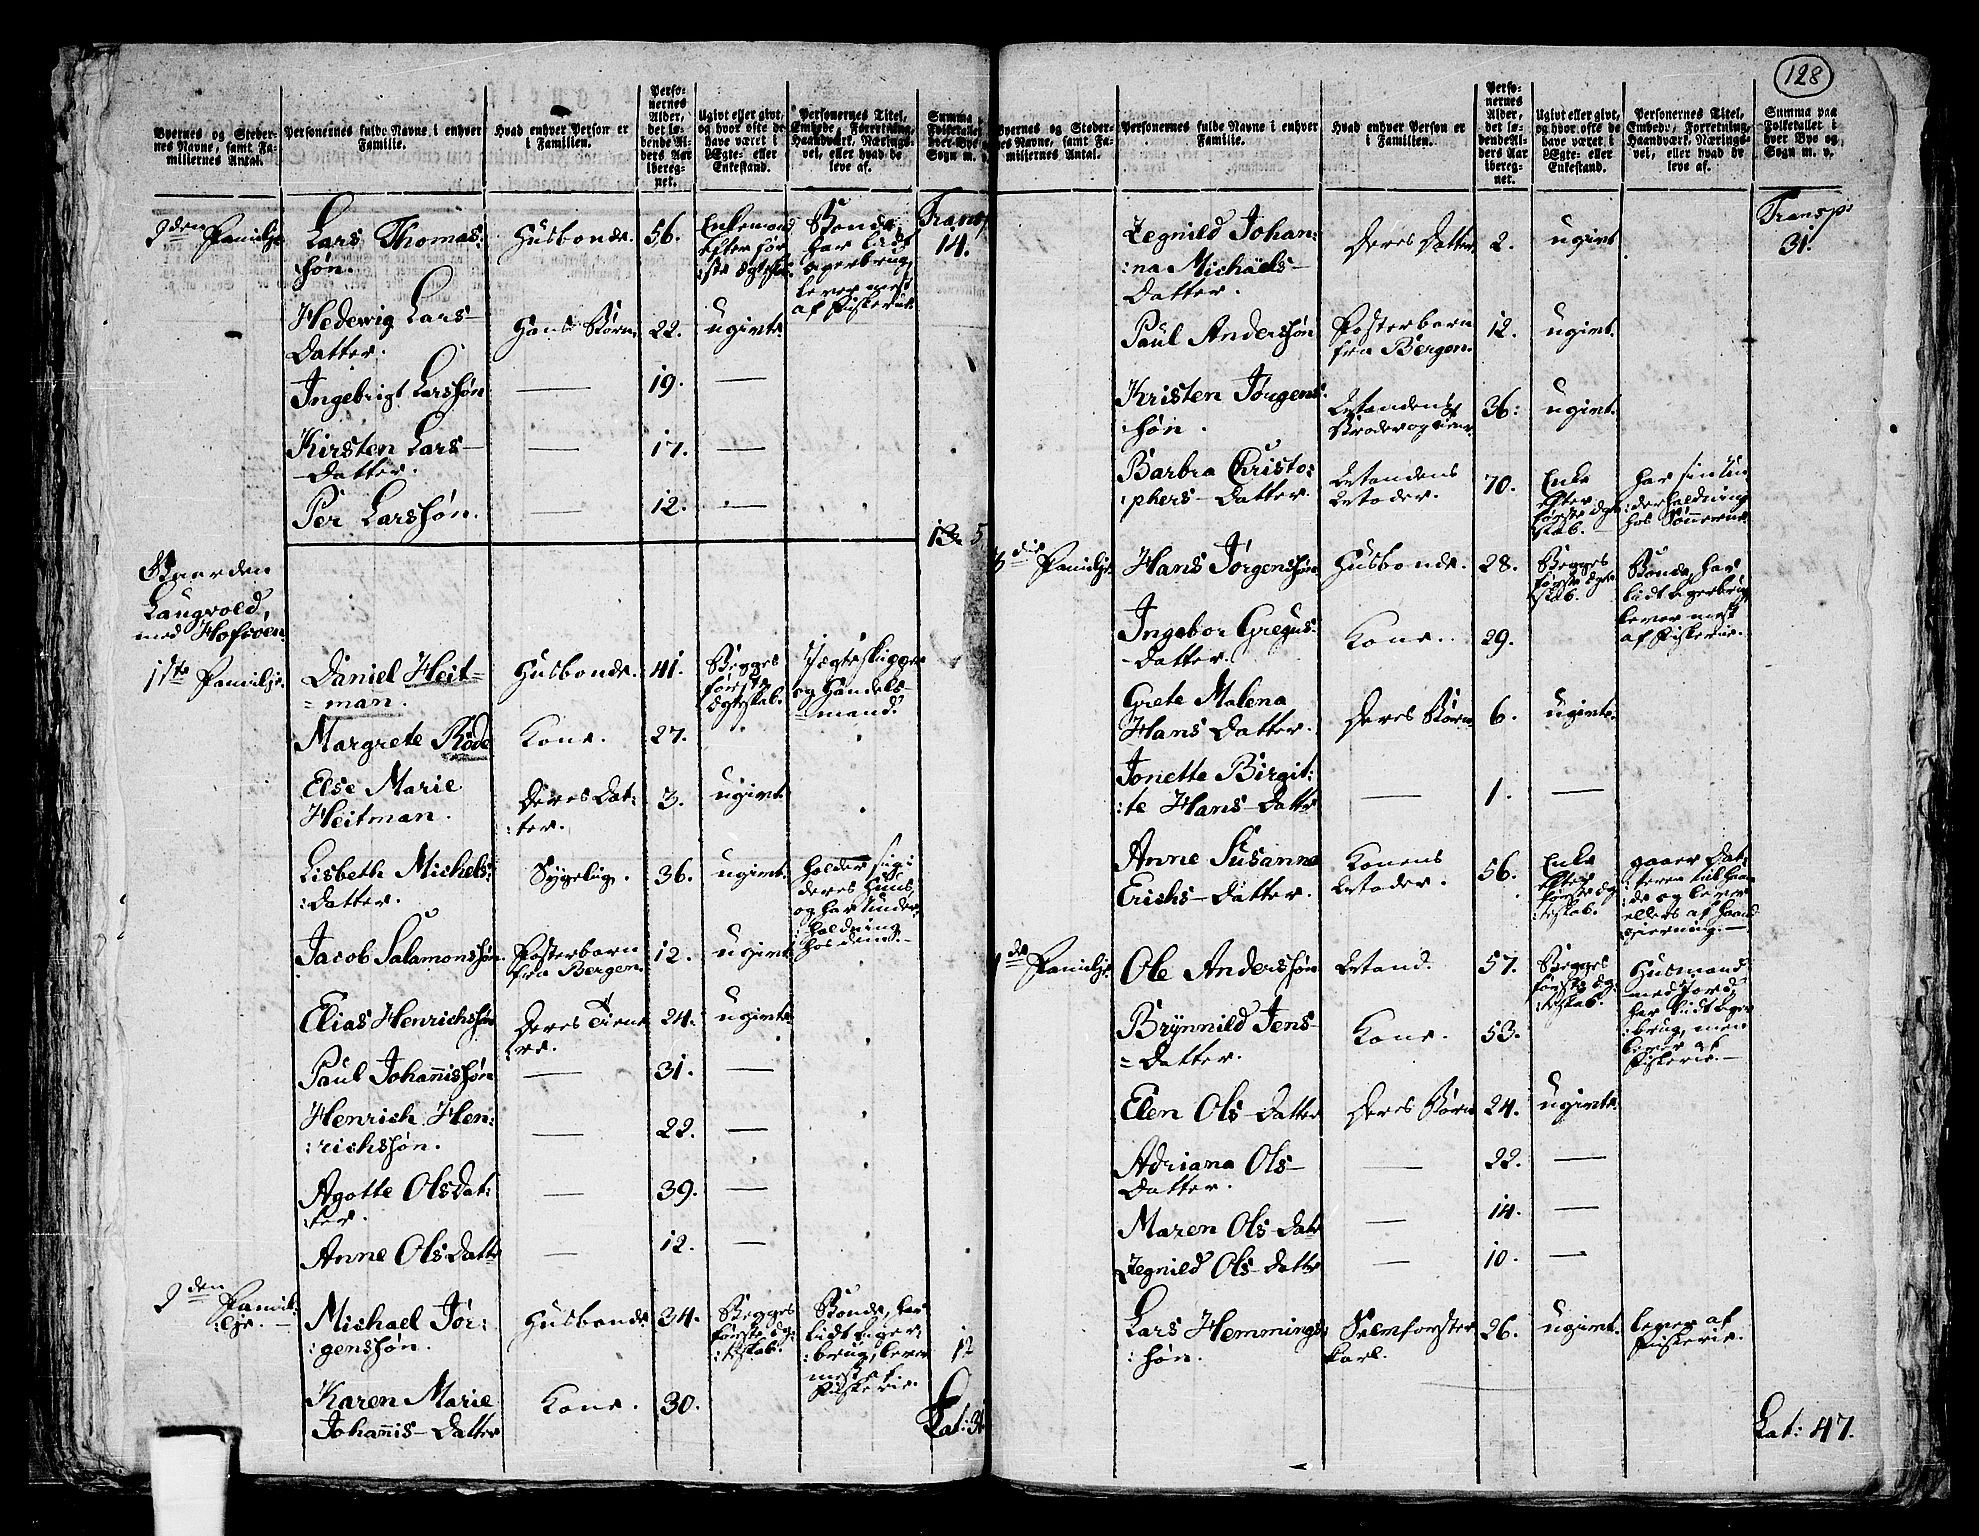 128
Byernes og Steder-
nes Navne, samt Fa-
miliernes Antal.
Personernes fulde Navne i enhver
Familie.
Hvad enhver Person er
i Familien.
Perso-
nernes
Alder,
det lø-
bende Al-
ders Aar
ibereg-
net.
Ugivt eller givt,
og hvor ofte de
have været i
Ægte- eller
Enkestand.
Personernes Titel,
Embede, Forretning,
Haandværk, Nærings-
vei, eller hvad de
leve af.
Summa
Folketallet i
hver Bye
Sogn m. v.
2den Familje
Lars Thomas:
søn.
Husbonde.
56.
Enkemand
efter før
ste Ægtesk.
Bonde,
har lidt
agerbrug,
lever mest
af Fiskerie.
Transp
14.
Hedewig Lars-
Datter.
Hans Børn.
22.
ugivte
Ingebrigt Larssøn
— 19. —
Kirsten Lars-
-Datter.
— 17. —
Per Larssøn.
— 12. —
5
Gaarden
Laugvold,
med Hofsøen
1ste Familje.
Daniel Heit-
=man.
Husbonde.
41.
Begges
første
Ægteskab.
Jægteskipper
og Handels-
=mand.
Margrete Röde
Kone.
27.
Else Marie
Heitman.
Deres Dat:
:ter.
3.
ugivt
Lisbeth Michels:
:datter.
36.
ugivt.
holder sig i
deres Huus,
og har Under:
:holdning
hos dem.-
Jacob Salamonssøn.
Fosterbarn
fra Bergen.
12.
ugivt
Elias Henrichssøn
Deres Tiene
ere.
24.
ugivte
Paul Johannissøn
— 31. —
Henrich Hen:
:richssøn.
— 22. —
Agotte Olsdat:
ter.
— 39. —
Anne Ols Datter
— 12. —
2den Famil:
:je.-
Michael Jør:
:genssøn.
Husbonde
34.
Begges
første Æg:
:teskab.
Bonde, har
lidt Ager:
:brug, lever
mest af
Fiskerie.
12
Karen Marie
Johannis-Datter
Kone.
30.
Lat: 31
Byernes og Steder-
nes Navne, samt Fa-
miliernes Antal.
Personernes fulde Navne i enhver
Familie.
Hvad enhver Person er
i Familien.
Perso-
nernes
Alder,
det lø-
bende Al-
ders Aar
ibereg-
net.
Ugivt eller givt,
og hvor ofte de
have været i
Ægte- eller
Enkestand.
Personernes Titel,
Embede, Forretning,
Haandværk, Nærings-
vei, eller hvad de
leve af.
Summa paa
Folketallet i
hver Bye og
Sogn m. v.
Zegnild Johan:
:na Michäels-
Datter.
Deres Datter
2.
ugivt
Transp:
31.
Paul Anderssøn
Fosterbarn
fra Bergen.
12.
ugivt.
Kristen Jørgens:
søn.
36:
ugivt.
Barbra Christo:
:phers-Datter.
70.
Enke
efter
første Æg
skab.
har sin Un
:derholdning
hos Sønnerne
3die Familje.
Hans Jørgenssøn
Husbonde.
28.
Begges
første Ægte
skab.
Bonde, har
lidt Agerbrug,
lever mest
af Fiskerie.
Ingebor Gregus:
-Datter.
Kone.
29.
Grete Malena
Hans Datter.
Deres Børn
6.
ugivte.
Jonette Birgit:
:te Hans-Datter
— 1. —
Anne Susanne
Erichs-Datter.
Konens
56.
Enke
efter
første Æg
:teskab.
gaaer Dat:
:teren til Haan
:de og lever
ellers af Haand
gierning.—
4de Familje.
Ole Anderssøn
57.
Begges
første Æg:
:teskab.
Husmand
med Jord,
har lidt Ager
:brug, men
lever af
Fiskerie.—
Brÿnnild Jens-
=Datter.
Kone.
53.
Elen Ols-Datter
Deres Børn
24.
ugivte.
Adriana Ols-
Datter.
— 22. —
Maren Ols-Datter
— 14. —
Zegnild Ols-Datter
— 10. —
Lars Hemmings:
:søn.
karl.
26.
ugivt.
lever af
Fiskerie.
Lat: 47.